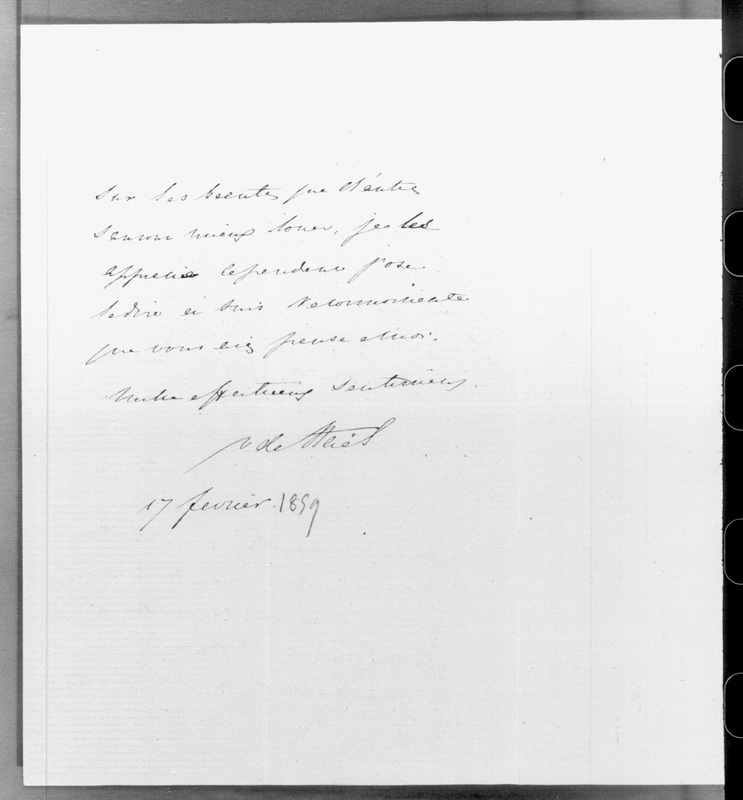 sur les beautés que d'autres
sauront mieux louer, je les
apprécie cependant j'ose
le dire et suis reconnaissante
que vous ayez pensé à moi.
Mille affectueux sentiments
17 février 1859